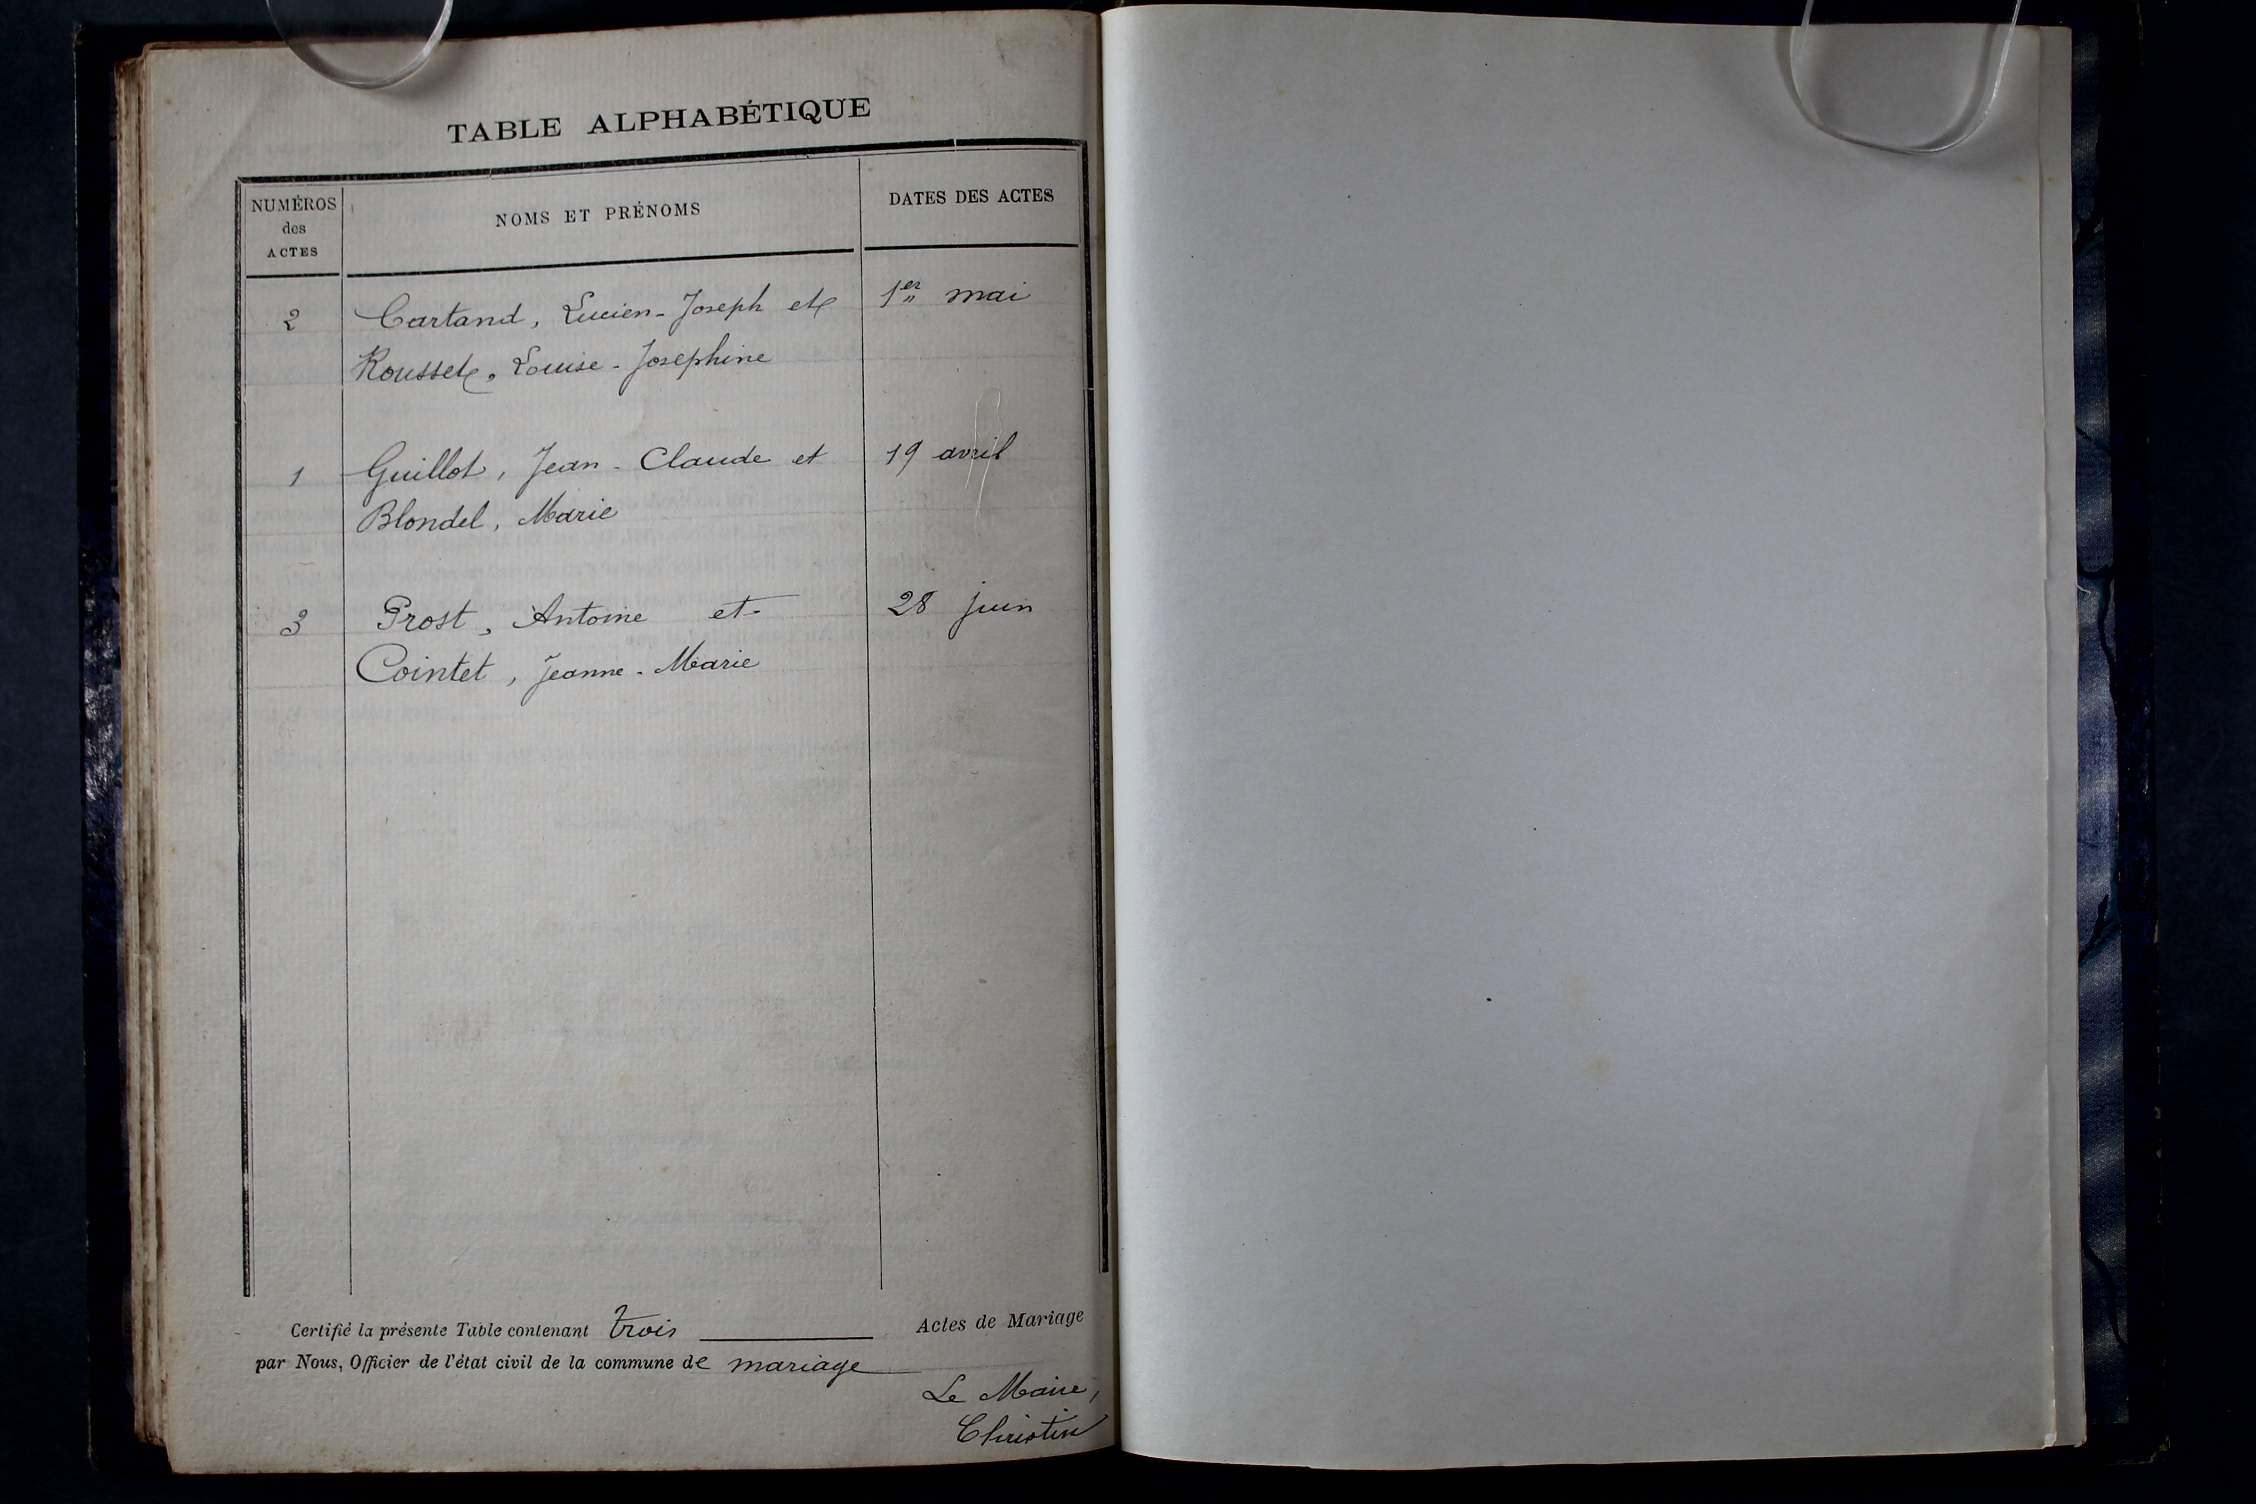 TABLE ALPHABÉTIQUE
NUMÉROS
des
ACTES
NOMS ET PRÉNOMS
DATES DES ACTES
2 Cartand, Lucien-Joseph et 1er mai
Rousset, Louise-Josephine
1 Guillot, Jean-Claude et 19 avril
Blondel, Marie
3 Prost, Antoine et 28 juin
Cointet, Jeanne-Marie
Certifié la présente Table contenant trois Actes de Mariage
par Nous, Officier de l'état civil de la commune de mariage
Le Maire,
Christin